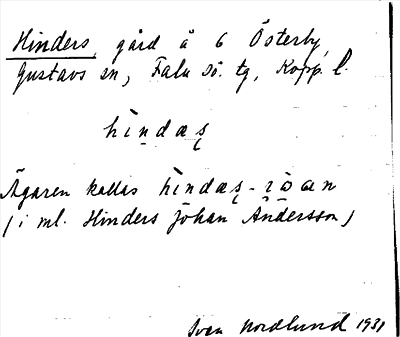 Hinders, gård å 6 Österby,
Gustavs sn, Falu sö. tg, Kopp. l.
hìndas̨
Ägaren kallas
(i ml. Hinders Johan Andersson)
Sven Nordlund 1931